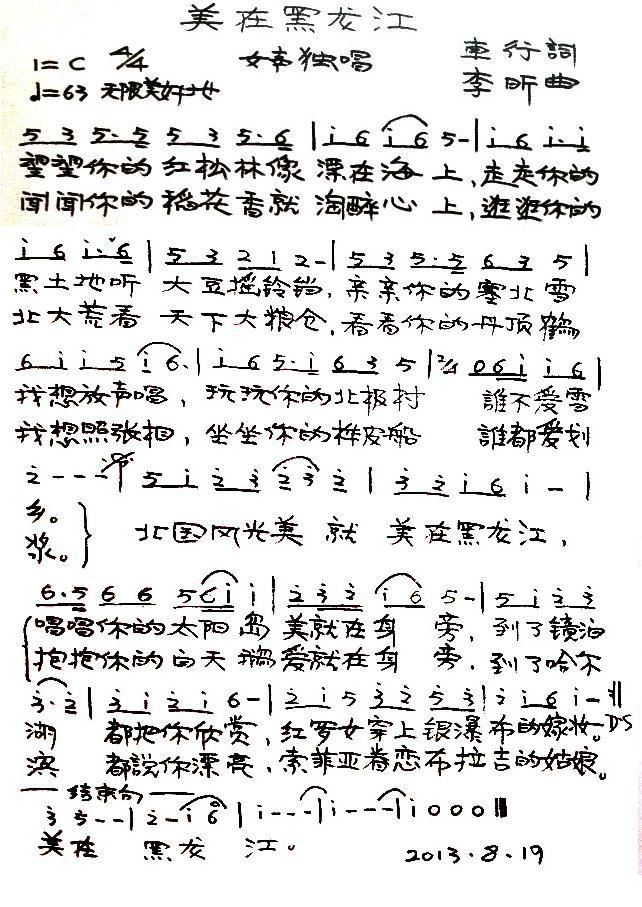 美在黑龙江
1=C 4/4 女声独唱 車行詞
♩=63 无限美好地 李昕曲
5 3 5· 5 5 3 5· 6 | i 6 i 6 5 - | i 6 i· i
望望你的红松林像漂在海上,走走你的
闻闻你的稻花香就淘醉心上,逛逛你的
i 6 i· 6 | 5 3 2 1 2 - | 5 3 5· 5 6 3 5 |
黑土地听大豆摇铃铛,亲亲你的塞北雪
北大荒看天下大粮仓,看看你的丹顶鹤
6 i i 5 i 6· | i 6 5· i 6 3 5 | 2/4 0 6 i i 6 |
我想放声唱,玩玩你的北极村 誰不爱雪
我想照张相,坐坐你的桦皮船 誰都爱划
2̇ - - - | 5 i 2̇ 3̇ 2̇ 3̇ 2̇ | 3̇ 2̇ i 6 i - |
乡。 北国风光美就美在黑龙江,
浆。
6· 5 6 6 5 6 i i | 2̇ 3̇ 2̇ i 6 5 - | 5 i 2̇ 3̇
唱唱你的太阳岛美就在身旁,到了镜泊
抱抱你的白天鹅爱就在身旁,到了哈尔
3̇· 2̇ | 3̇ i 2̇ i 6 - | 2̇ i 5 3̇ 2̇ 5 3̇ | 2̇ i 6 i - :‖
湖 都把你欣赏,红罗女穿上银瀑布的嫁妆。DS
滨 都説你漂亮,索菲亚眷恋布拉吉的姑娘。
结束句
3̇ 5̇ - - | 2̇ - i 6 | i - - - | i - - - | i 0 0 0 ‖
美在黑龙江。 2013.8.19